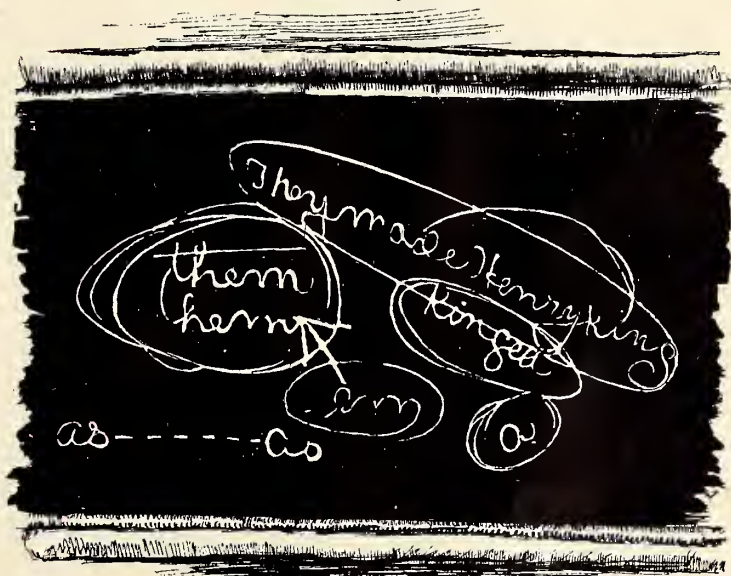 They made Henry King
them
hem
kinged
a
as------as